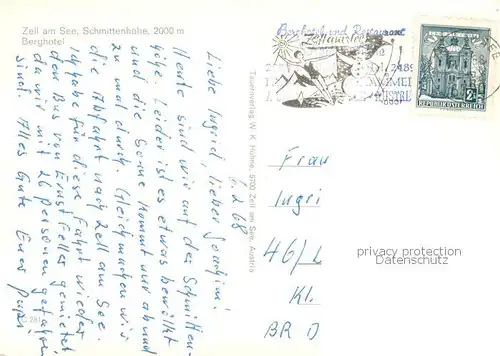 Zell am See, Schmittenhöhe, 2000 m
Berghotel
Berghotel und Restaurant
Zell am See
REPUBLIK ÖSTERREICH
6.2.68
Liebe Ingrid, lieber Joachim!
Heute sind wir auf der Schmitten-
höhe. Leider ist es etwas bewölkt
und die Sonne kommt nur ab und
zu mal durch. Gleich machen wir
die Abfahrt nach Zell am See.
Ich habe für diese Fahrt wieder
den Bus von Ernst Felles gemietet
da wir mit 26 Personen gefahren
sind. Alles Gute Euer Papi
Tauernverlag W. K. Höhne, 5700 Zell am See, Austria
Frau
Ingri
46/L
Kl.
BR D
privacy protection
Datenschutz